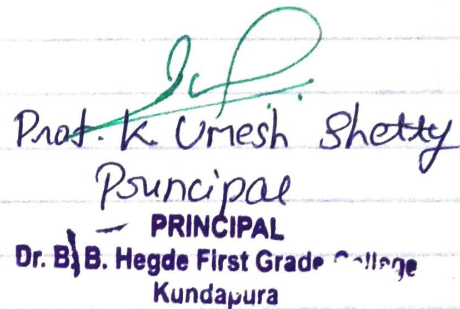 Prof. K Umesh Shetty
Principal
PRINCIPAL
Dr. B. B. Hegde First Grade College
Kundapura